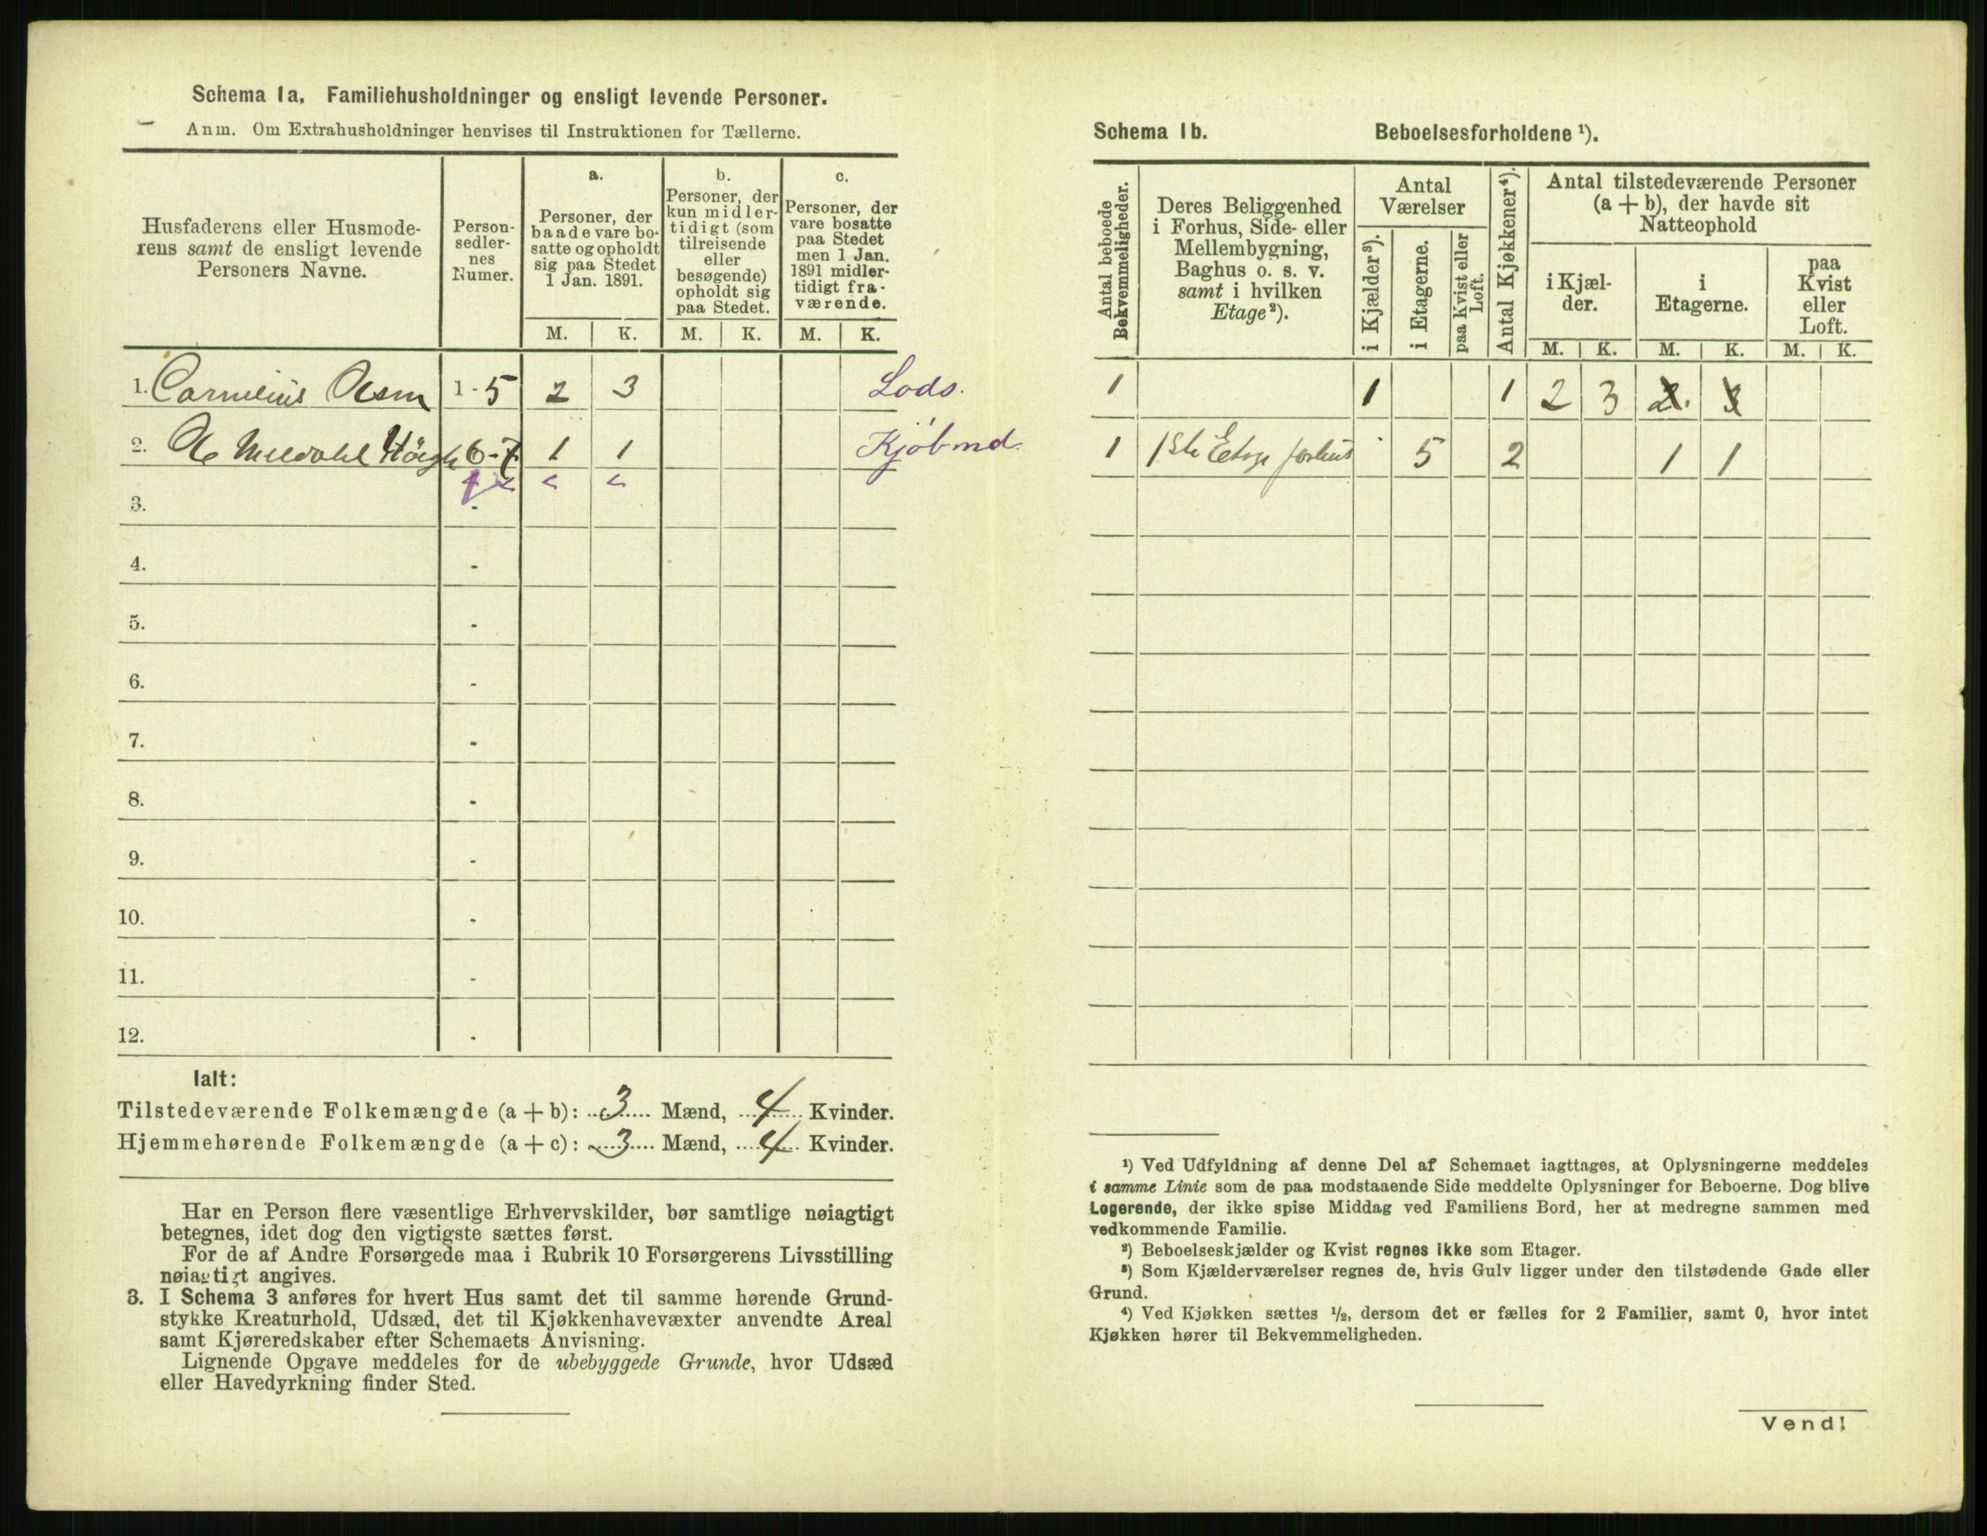 Schema 1a. Familiehusholdninger og ensligt levende Personer.
Anm. Om Extrahusholdninger henvises til Instruktionen for Tællerne.
Husfaderens eller Husmode-
rens samt de ensligt levende
Personers Navne.
Person-
sedler-
nes
Numer.
a.
Personer, der
baade vare bo-
satte og opholdt
sig paa Stedet
1 Jan. 1891.
b.
Personer, der
kun midler-
tidigt (som
tilreisende
eller
besøgende)
opholdt sig
paa Stedet.
c.
Personer, der
vare bosatte
paa Stedet
men 1 Jan.
1891 midler-
tidigt fra-
værende.
M. K. M. K. M. K.
1. Cornelius 1 - 5 2 3 Lods.
2. Meldahl Höegh 6-7 1 1 Kjøbmd.
3. -
4. -
5. -
6. -
7. -
8. -
9. -
10. -
11. -
12. -
Ialt:
Tilstedeværende Folkemængde (a + b): 3 Mænd, 4 Kvinder.
Hjemmehørende Folkemængde (a + c): 3 Mænd, 4 Kvinder.
Har en Person flere væsentlige Erhvervskilder, bør samtlige nøiagtigt
betegnes, idet dog den vigtigste sættes først.
For de af Andre Forsørgede maa i Rubrik 10 Forsørgerens Livsstilling
nøiagtigt angives.
3. I Schema 3 anføres for hvert Hus samt det til samme hørende Grund-
stykke Kreaturhold, Udsæd, det til Kjøkkenhavevæxter anvendte Areal
samt Kjøreredskaber efter Schemaets Anvisning.
Lignende Opgave meddeles for de ubebyggede Grunde, hvor Udsæd
eller Havedyrkning finder Sted.
Schema 1b. Beboelsesforholdene ¹).
Antal beboede
Bekvemmeligheder.
Deres Beliggenhed
i Forhus, Side- eller
Mellembygning,
Baghus o. s. v.
samt i hvilken
Etage²).
Antal
Værelser
i Kjælder³).
i Etagerne.
paa Kvist eller
Loft.
Antal Kjøkkener⁴).
Antal tilstedeværende Personer
(a + b), der havde sit
Natteophold
i Kjæl-
der.
i
Etagerne.
paa
Kvist
eller
Loft.
M. K. M. K. M. K.
1 1 1 2 3 2. 3
1 1ste Etage forhus 5 2 1 1
¹) Ved Udfyldning af denne Del af Schemaet iagttages, at Oplysningerne meddeles
i samme Linie som de paa modstaaende Side meddelte Oplysninger for Beboerne. Dog blive
Logerende, der ikke spise Middag ved Familiens Bord, her at medregne sammen med
vedkommende Familie.
²) Beboelseskjælder og Kvist regnes ikke som Etager.
³) Som Kjælderværelser regnes de, hvis Gulv ligger under den tilstødende Gade eller
Grund.
⁴) Ved Kjøkken sættes ½, dersom det er fælles for 2 Familier, samt 0, hvor intet
Kjøkken hører til Bekvemmeligheden.
Vend!